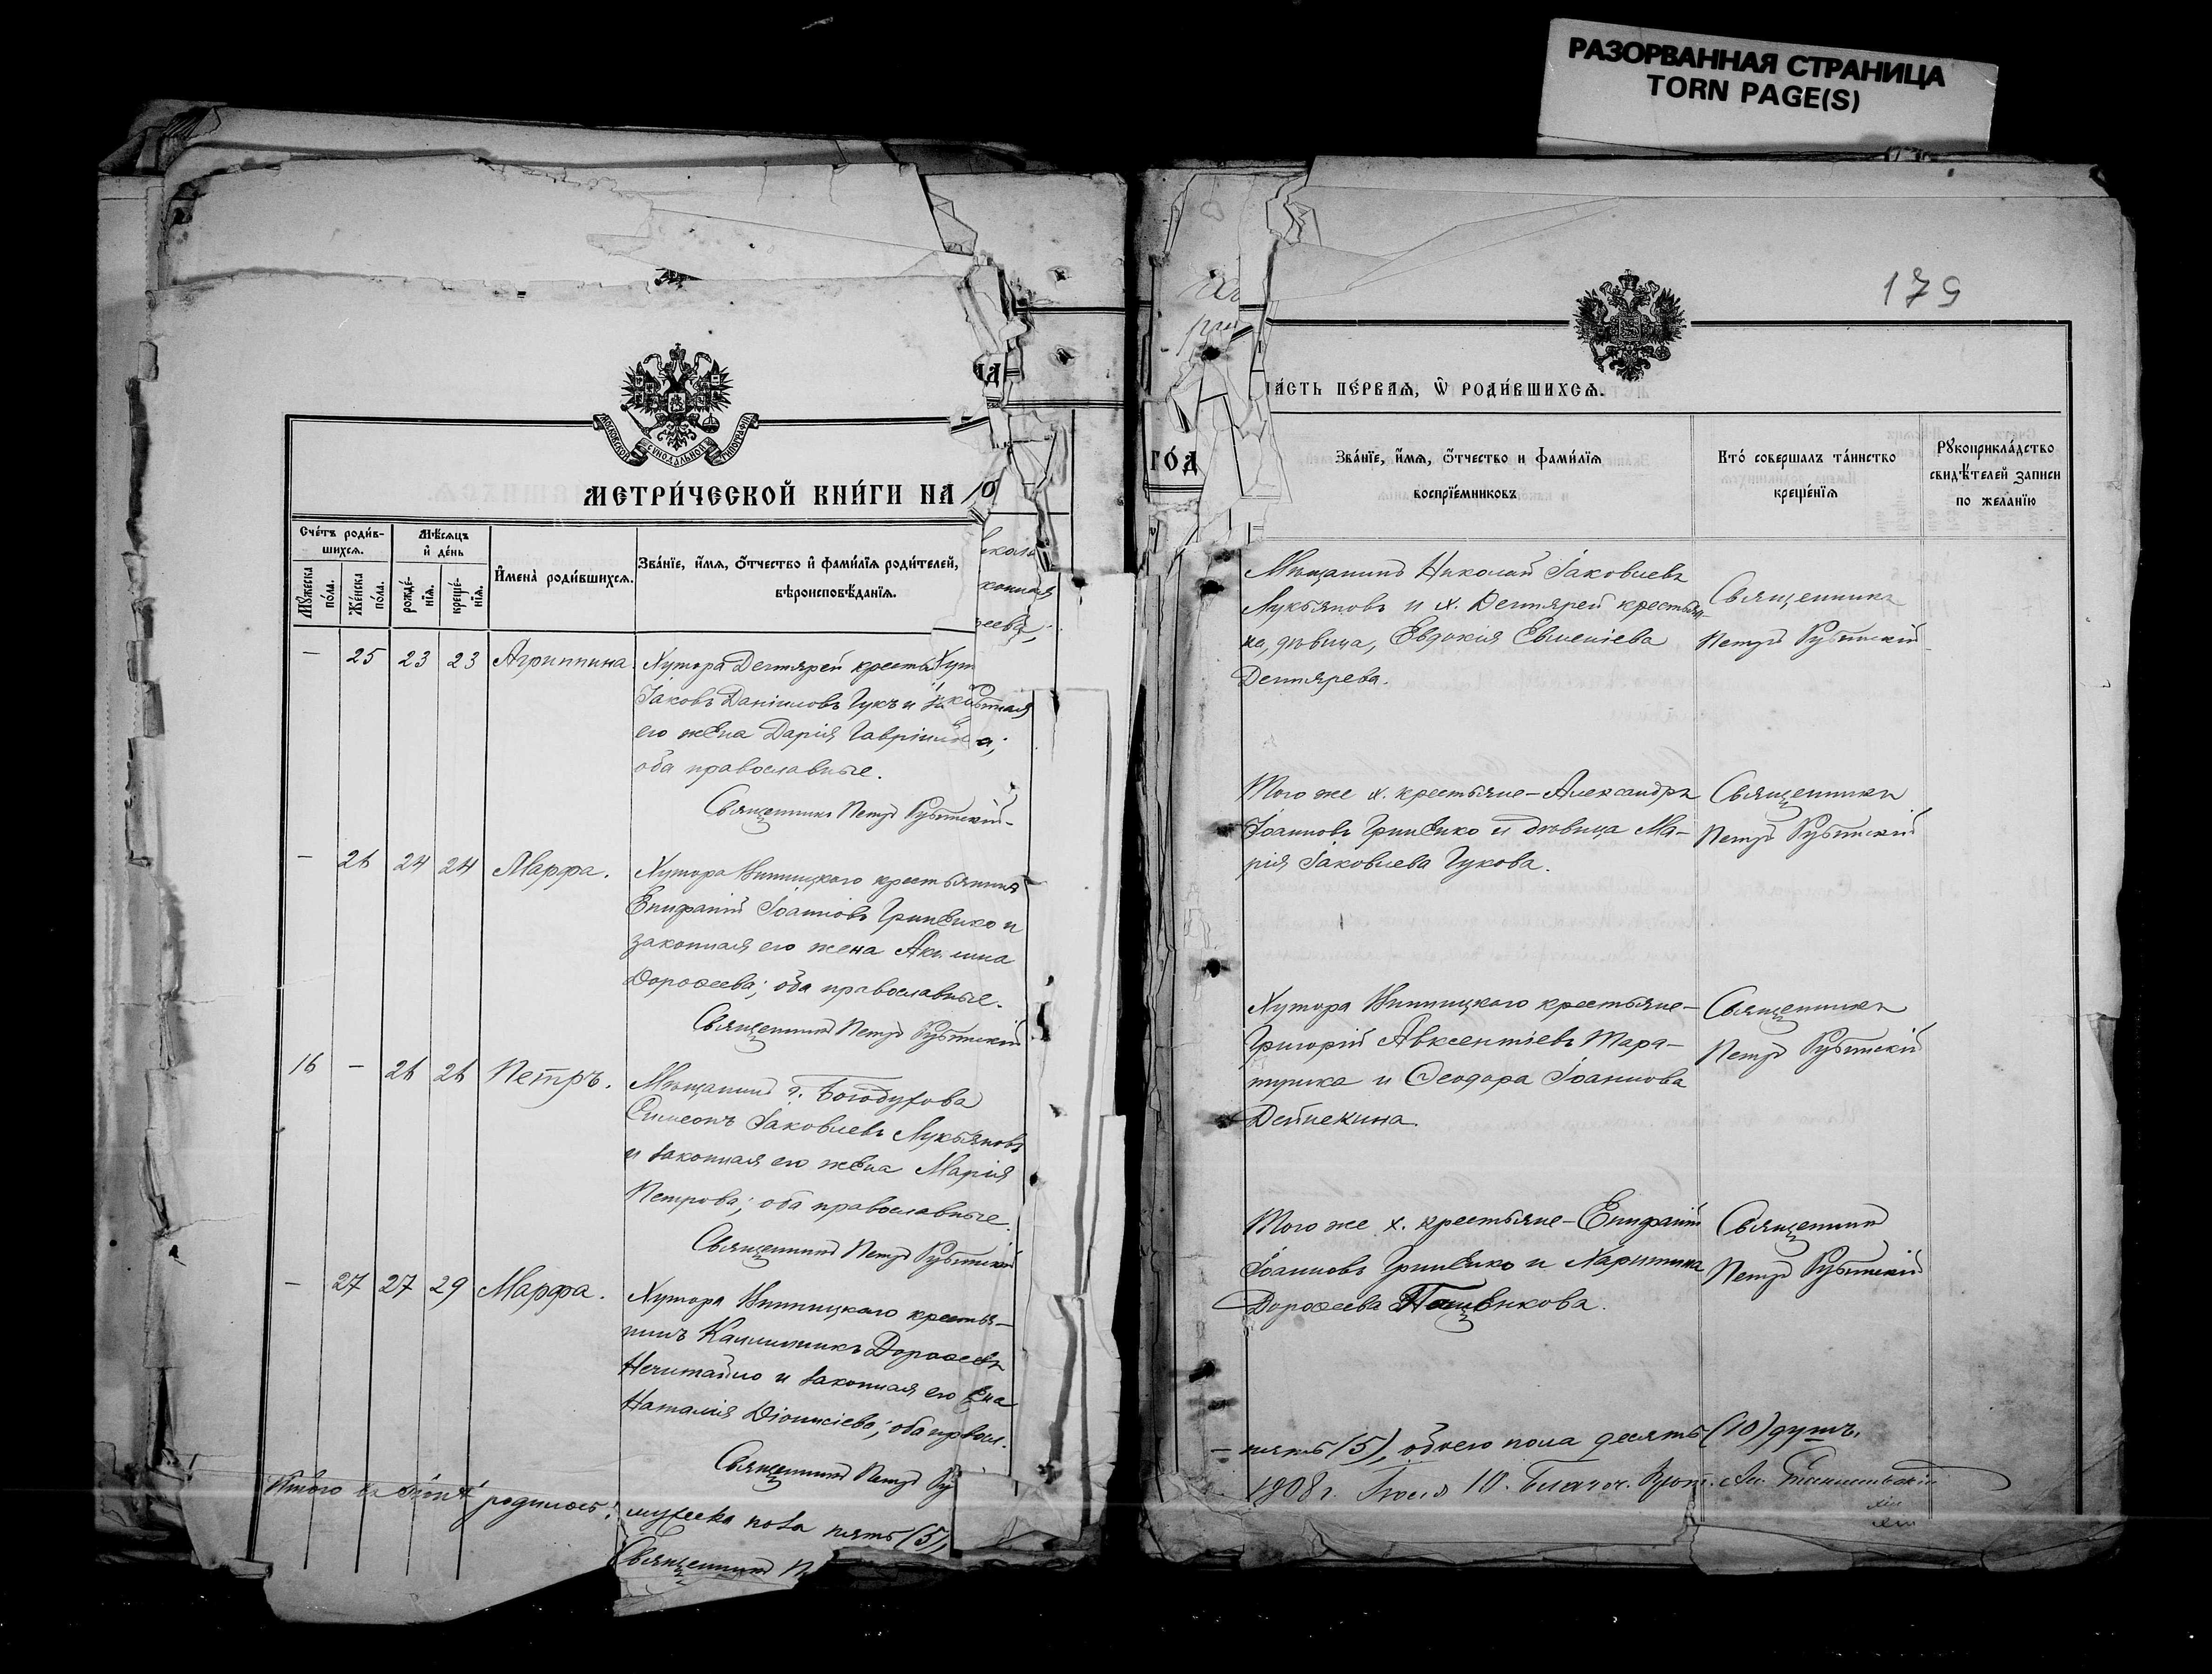 РАЗОРВАННАЯ СТРАНИЦА
TORN PAGE(S)
МОСКОВСКОЙ СѴНОДАЛЬНОЙ ТИПОГРАФІИ
МЕТРИ́ЧЕСКОЙ КНИ́ГИ НА
Сче́тъ роди́в-
шихсѧ.
Мѣ́сѧцъ
и҆ де́нь
Мꙋ́жеска
по́ла.
Же́нска
по́ла.
рожде́-
нїѧ.
креще́-
нїѧ.
И҆мена̀ роди́вшихсѧ.
Зва́нїе, и҆́мѧ, ѻ҆́тчество и҆ фами́лїѧ роди́телей,
вѣроисповѣ́данїѧ.
— 25 23 23 Агриппина.
Хутора Дегтярей
Іаковъ Даніиловъ Гукъ и
его жена Дарія
оба православные.
Священникъ Петръ
— 26 24 24 Марфа.
Хутора крестьянинъ
Епифаній Іоанновъ Гриненко и
законная его жена
Дороѳеева; оба православные.
Священникъ Петръ
16 — 26 26 Петръ.
Мѣщанинъ г. Богодухова
Симеонъ Іаковлевъ Лукьяновъ
и законная его жена Марія
Петрова; оба православные.
Священникъ Петръ
— 27 27 29 Марфа.
Хутора крестья-
нинъ Каллиникъ Дороѳеевъ
Нечитайло и законная его
Наталія Діонисіева; оба
Священникъ Петръ
Итого родилось:
мужеска пола пять (5),
Священникъ
ГО́Д
179
ПЕ́РВАѦ, Ѽ РОДИ́ВШИХСѦ.
Зва́нїе, и҆́мѧ, ѻ҆́тчество и фами́лїѧ
воспрїе́мниковъ
Кто́ соверша́лъ та́инство
креще́нїѧ
Рꙋкоприкла́дство
свидѣ́телей за́писи
по жела́нїю
Мѣщанинъ Николай Іаковлевъ
Лукьяновъ и х. Дегтярей крестьян-
ка, дѣвица, Евдокія Евменіева
Дегтярева.
Священникъ
Петръ
Того же х. крестьяне - Александръ
Іоанновъ Гриненко и дѣвица Ма-
рія Іаковлева Гукова.
Священникъ
Петръ
Хутора крестьяне -
Григорій Авксентіевъ Тара-
нушка и Ѳеодора Іоаннова
Дейнекина.
Священникъ
Петръ
Того же х. крестьяне - Епифаній
Іоанновъ Гриненко и Харитина
Дороѳеева
Священникъ
Петръ
- пять (5), обоего пола десять (10) душъ.
1908 г. 10. Благоч. Прот.